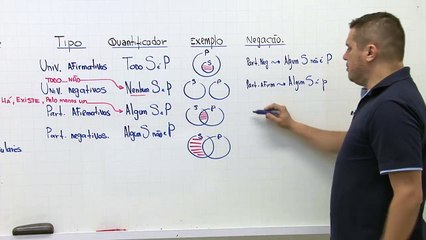 Tipo Quantificador Exemplo Negação.
Univ. Afirmativos Todo S é P S P Part. Neg → Algum S não é P
TODO... NÃO
Univ. negativos Nenhum S é P S P Part. Afirm → Algum S é P
HÁ, EXISTE, Pelo menos um
Part. Afirmativos Algum S é P S P
Part. negativos. Algum S não é P S P
ulares